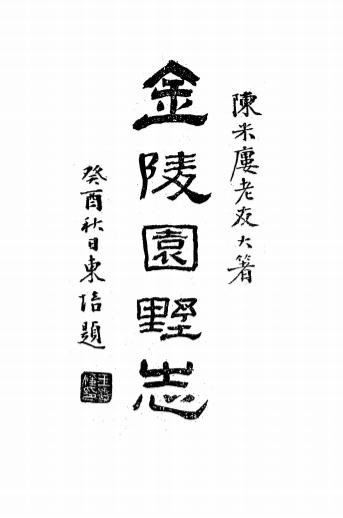 陳米廔老友大箸
金陵園野志
癸酉秋日東培題